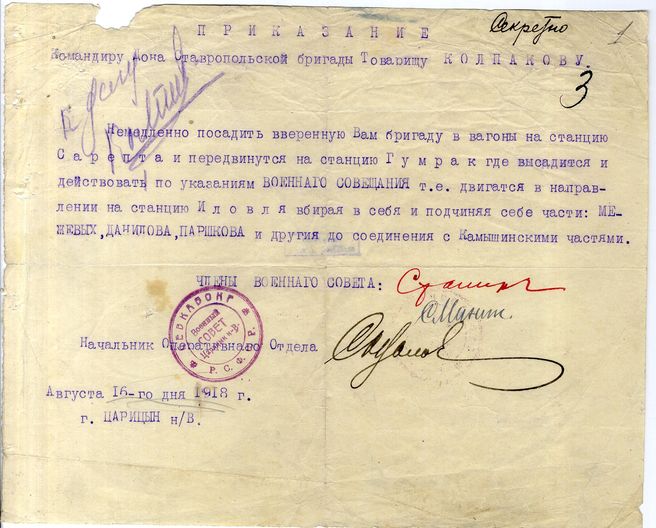 Секретно
1
ПРИКАЗАНИЕ
Командиру 4она Ставропольской бригады Товарищу КОЛПАКОВУ.
3
К делу
Немедленно посадить вверенную Вам бригаду в вагоны на станцию
Сарепта и передвинутся на станцию Гумрак где высадится и
действовать по указаниям ВОЕННАГО СОВЕЩАНИЯ т.е. двигатся в направ-
лении на станцию Иловля вбирая в себя и подчиняя себе части: МЕ-
ЖЕВЫХ,ДАНИЛОВА,ПАРШКОВА и другия до соединения с Камышинскими частями.
ЧЛЕНЫ ВОЕННАГО СОВЕТА: Сталин
СМинин.
СЕВКАВОКР
Р.С.Ф.
Военный
СОВЕТ
Царицын н-В.
Начальник Оперативнаго Отдела
Августа 16-го дня 1918 г.
г. ЦАРИЦЫН н/В.